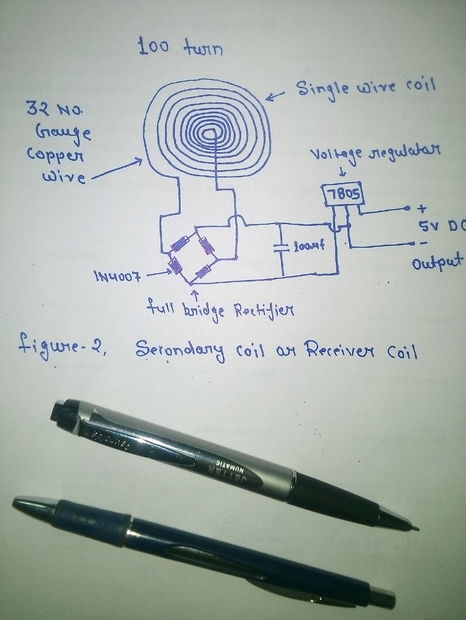 100 turn
Single wire coil
32 No.
Gauge
Copper
wire
Voltage regulator
7805
+
5V DC
-
Output
100mf
1N4007
full bridge Rectifier
figure-2, Serondary coil or Receiver Coil
JETTER
NUMATIC